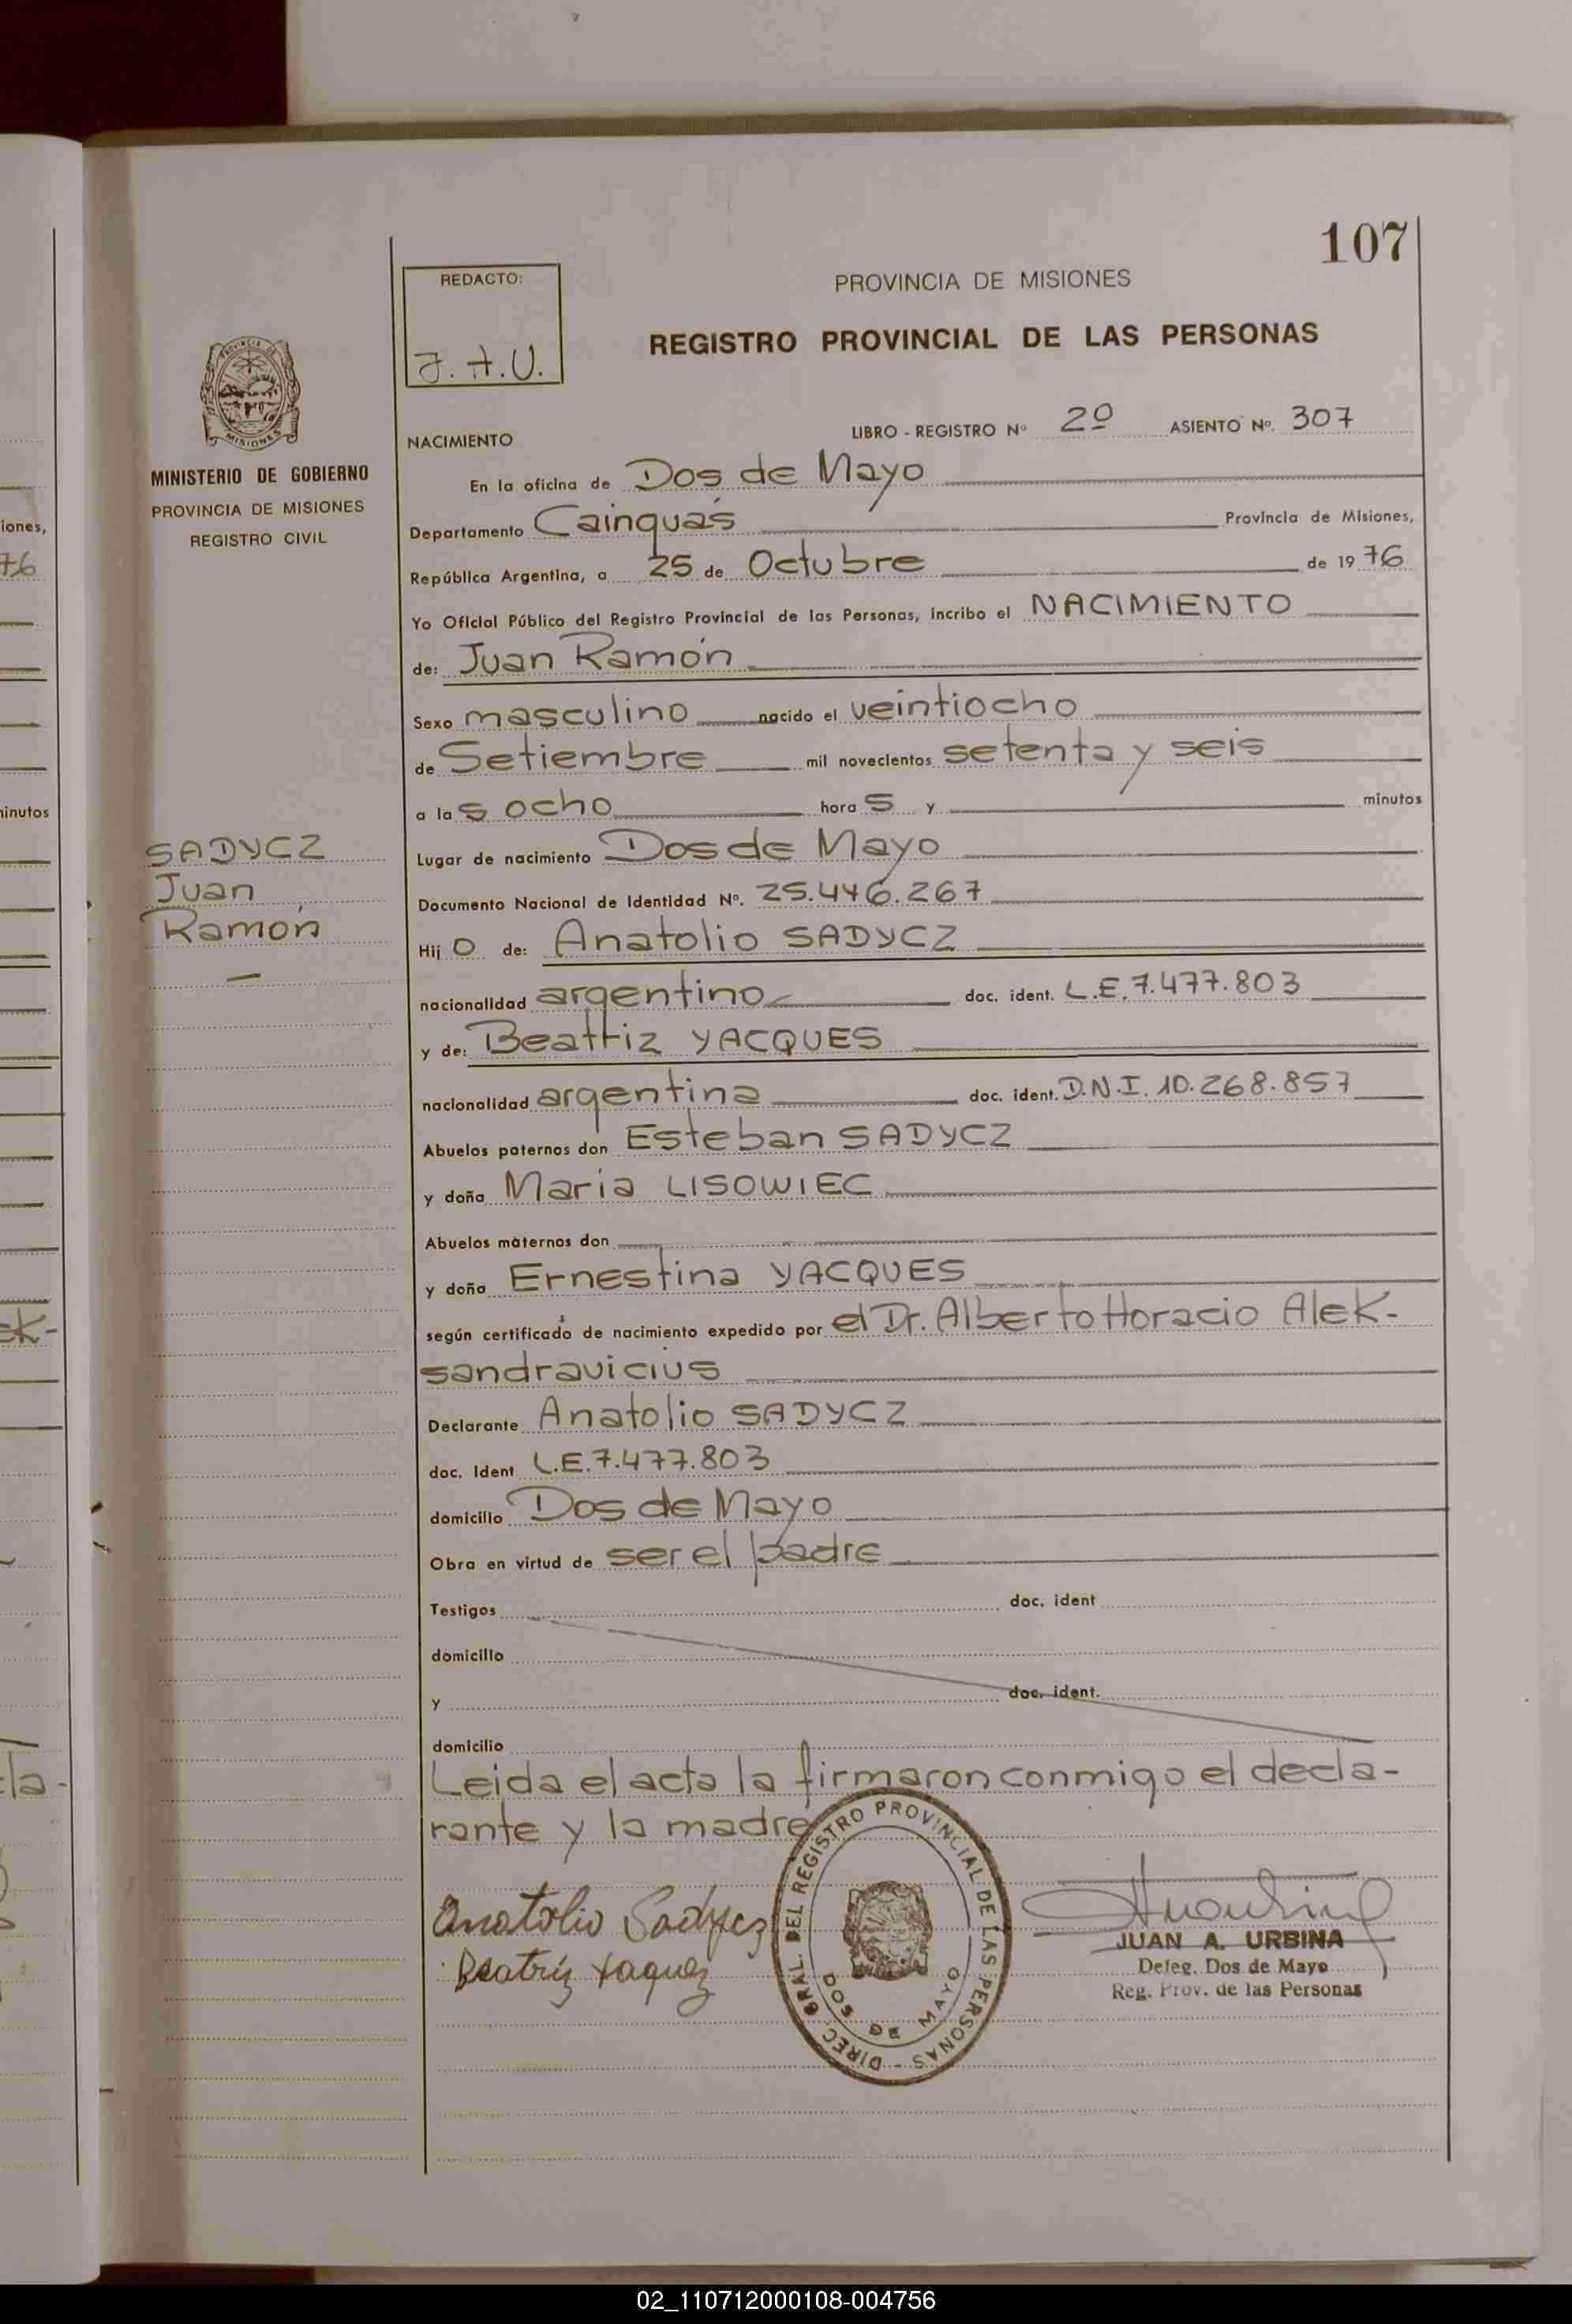 107
REDACTO:
J.A.U.
PROVINCIA DE MISIONES
REGISTRO PROVINCIAL DE LAS PERSONAS
MISIONES
MINISTERIO DE GOBIERNO
PROVINCIA DE MISIONES
REGISTRO CIVIL
NACIMIENTO LIBRO - REGISTRO Nº 2º ASIENTO Nº. 307
En la oficina de Dos de Mayo
Departamento Cainguás Provincia de Misiones,
República Argentina, a 25 de Octubre de 1976
Yo Oficial Público del Registro Provincial de las Personas, incribo el NACIMIENTO
de: Juan Ramón
Sexo masculino nacido el veintiocho
de Setiembre mil novecientos setenta y seis
a las ocho horas y minutos
Lugar de nacimiento Dos de Mayo
SADYCZ
Juan
Ramón
Documento Nacional de Identidad Nº. 25.446.267
Hijo de: Anatolio SADYCZ
nacionalidad argentino doc. ident. L.E.7.477.803
y de: Beatriz YACQUES
nacionalidad argentina doc. ident. D.N.I. 10.268.857
Abuelos paternos don Esteban SADYCZ
y doña Maria LISOWIEC
Abuelos maternos don
y doña Ernestina YACQUES
según certificado de nacimiento expedido por el Dr. Alberto Horacio Alek-
sandravicius
Declarante Anatolio SADYCZ
doc. Ident L.E.7.477.803
domicilio Dos de Mayo
Obra en virtud de ser el padre
Testigos doc. ident
domicilio
y doc. ident.
domicilio
Leida el acta la firmaron conmigo el decla-
rante y la madre
Anatolio Sadycz
Beatríz Yaquez
DIREC. GRAL. DEL REGISTRO PROVINCIAL DE LAS PERSONAS -
DOS DE MAYO
JUAN A. URBINA
Deleg. Dos de Mayo
Reg. Prov. de las Personas
iones,
76
inutos
ek-
cla-
02_110712000108-004756